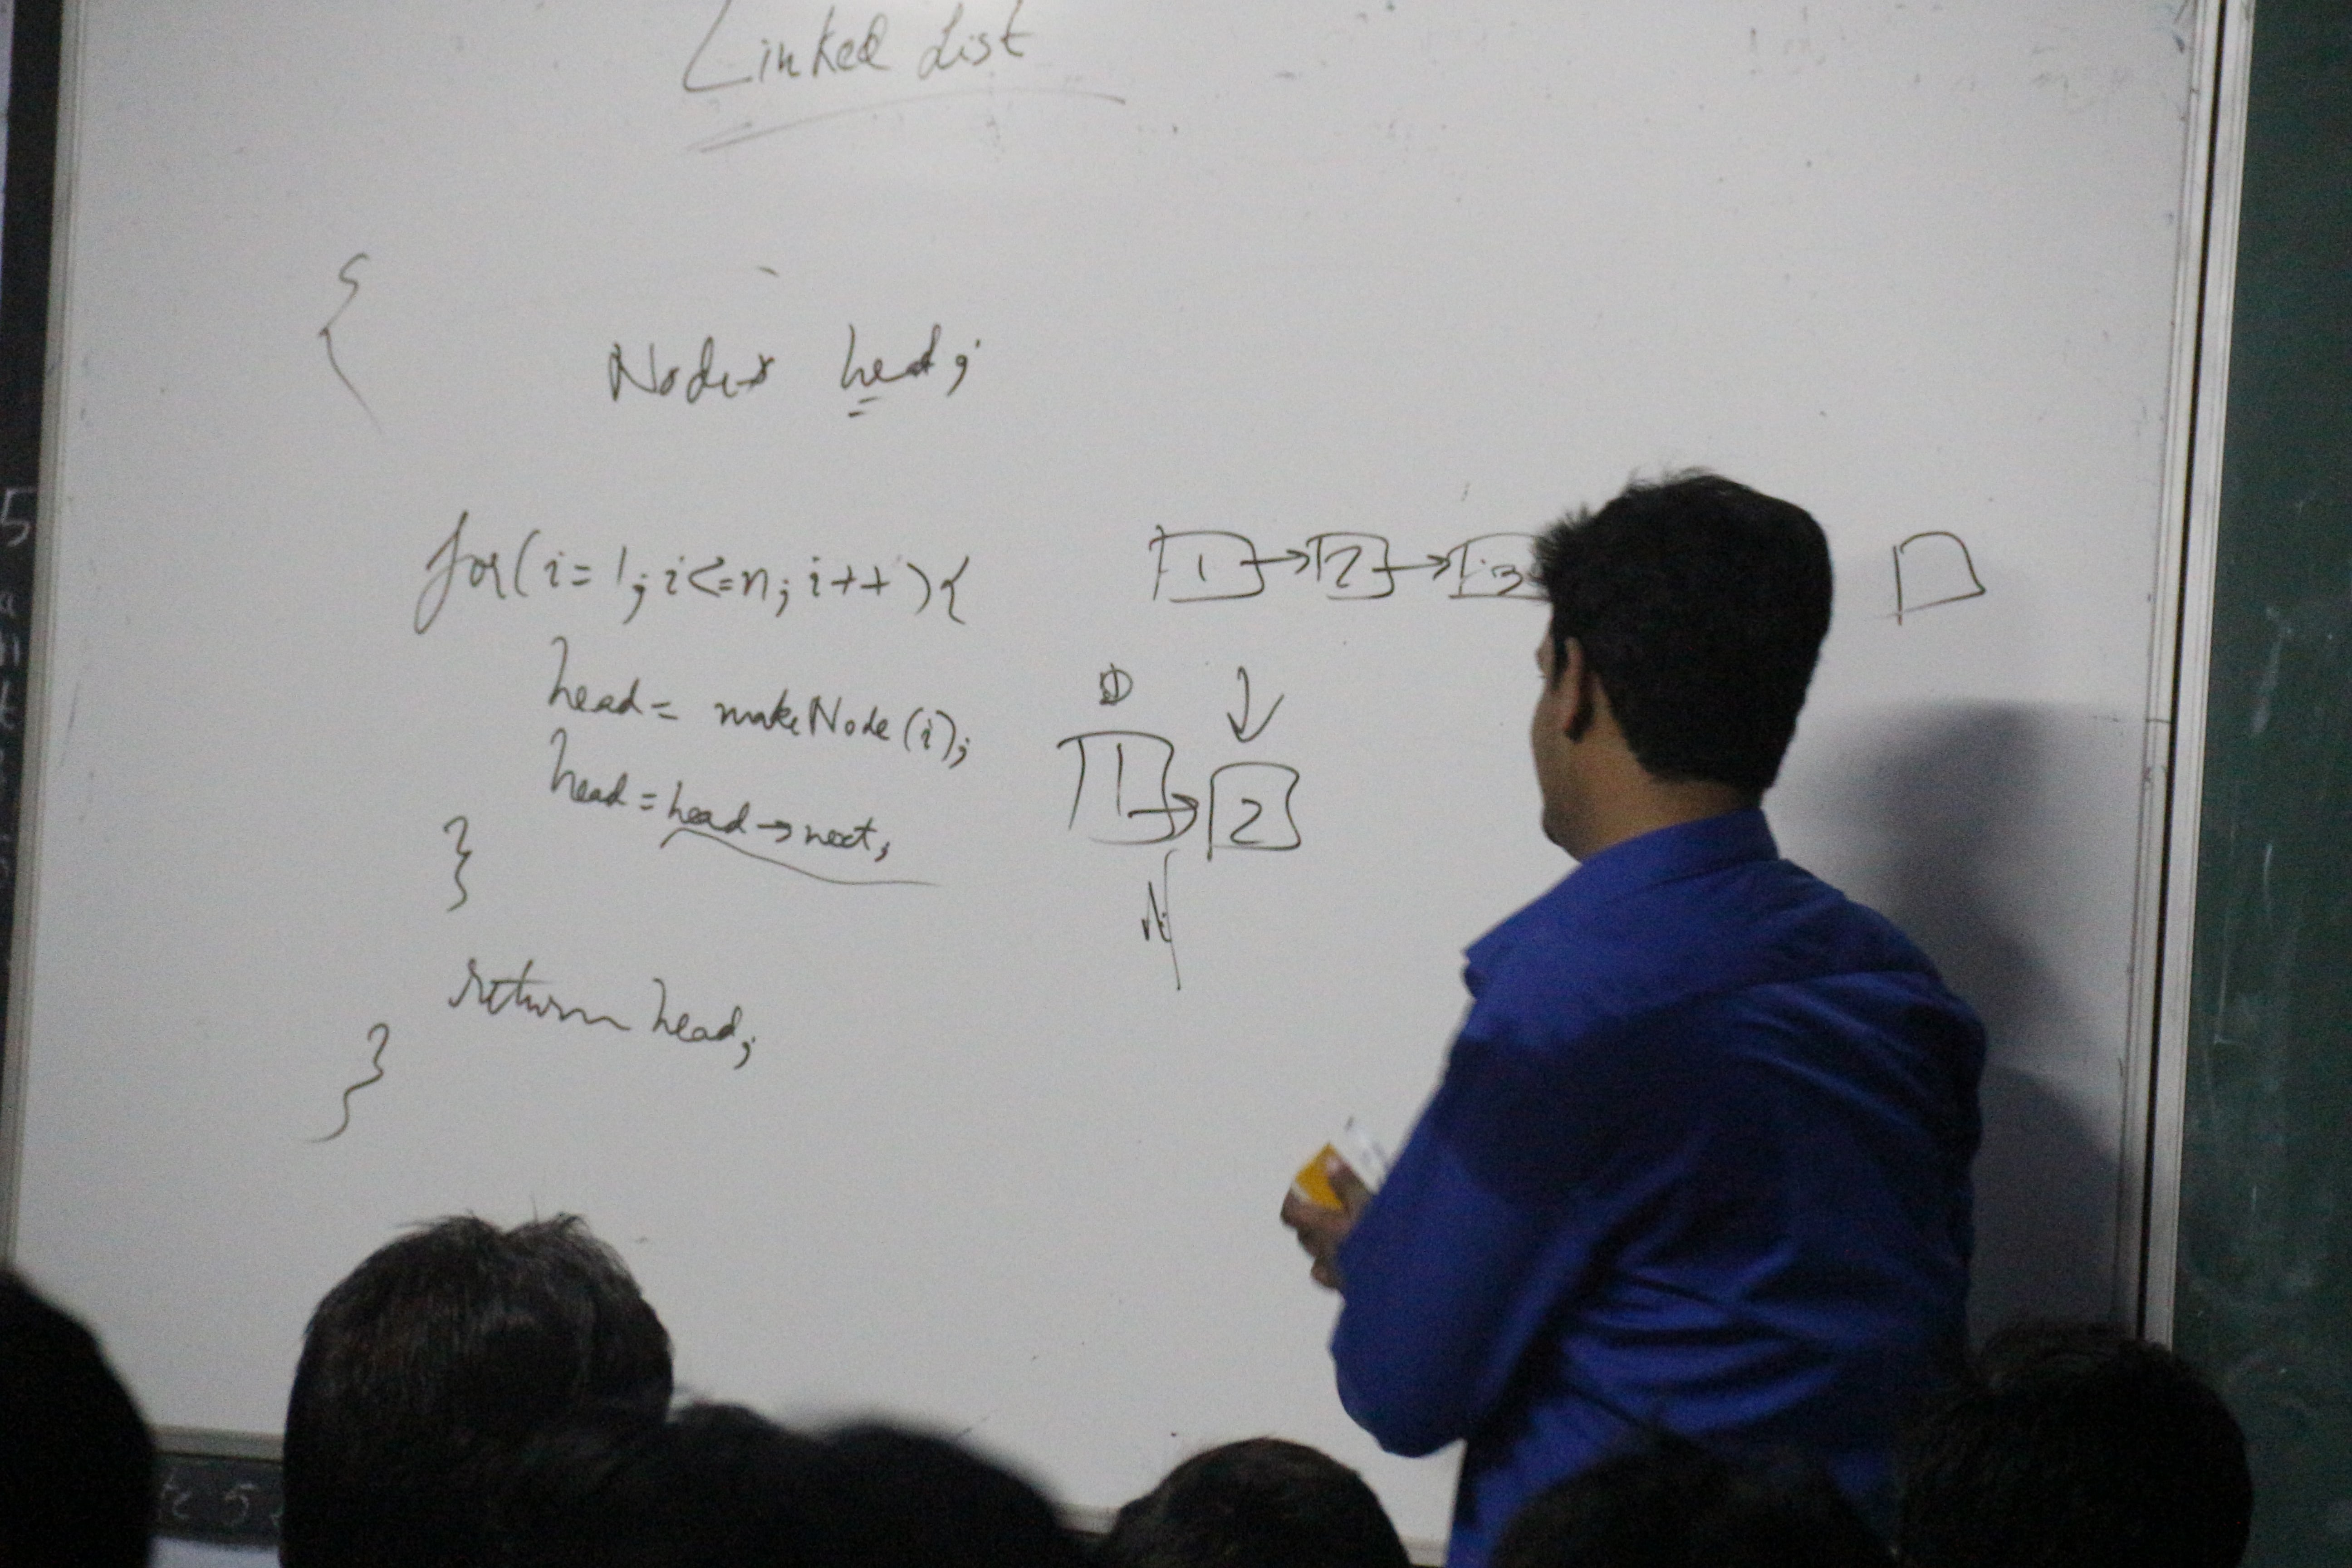 Linked List
{
Node* head;
for(i=1;i<=n;i++){
head= makeNode(i);
head=head→next;
}
return head;
}
1→2→3
1→2
N
5